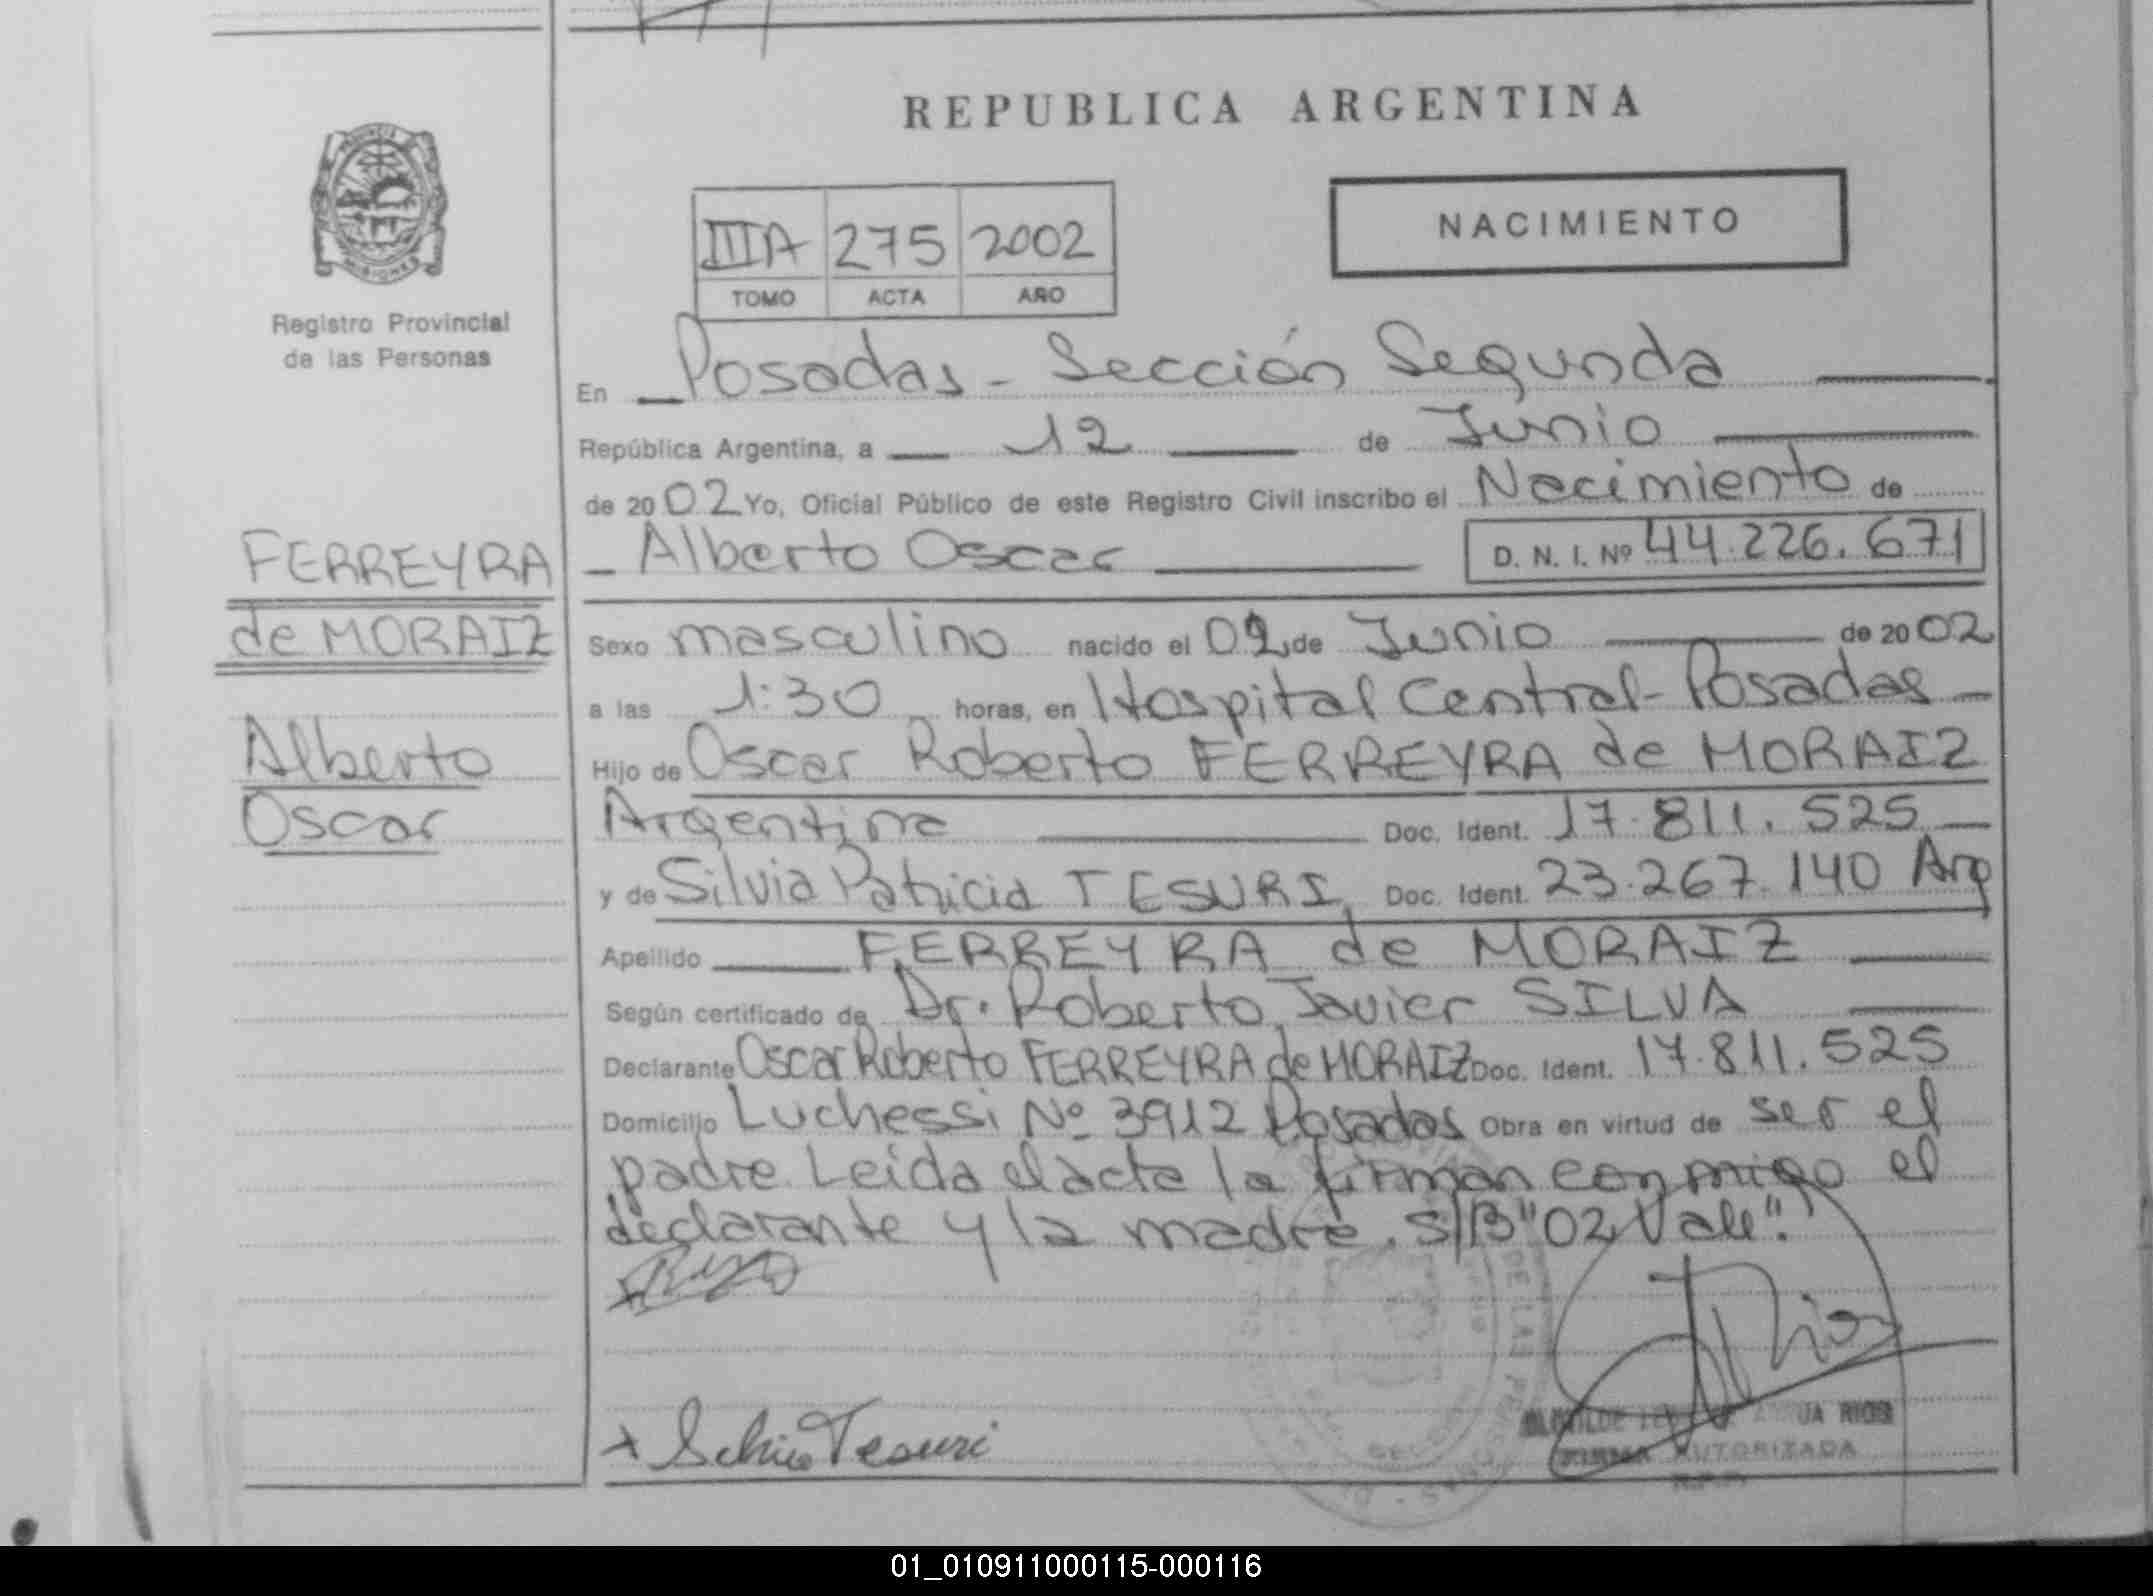 REPUBLICA ARGENTINA
PROVINCIA
MISIONES
Registro Provincial
de las Personas
NACIMIENTO
IIIA 275 2002
TOMO ACTA AÑO
En Posadas - Sección Segunda
República Argentina, a 12 de Junio
de 2002 Yo, Oficial Público de este Registro Civil inscribo el Nacimiento de
Alberto Oscar D. N. I. Nº 44.226.671
FERREYRA
de MORAIZ
Alberto
Oscar
Sexo masculino nacido el 02 de Junio de 2002
a las 1:30 horas, en Hospital Central - Posadas
Hijo de Oscar Roberto FERREYRA de MORAIZ
Argentina Doc. Ident. 17.811.525
y de Silvia Patricia TESURI Doc. Ident. 23.267.140 Arg
Apellido FERREYRA de MORAIZ
Según certificado de Dr. Roberto Javier SILVA
Declarante Oscar Roberto FERREYRA de MORAIZ Doc. Ident. 17.811.525
Domicilio Luchessi Nº 3912 Posadas Obra en virtud de ser el
padre. Leida el acta la firman conmigo el
declarante y la madre. S/B "02 Vale".
Silvia Tesuri
DE LAS
RIOS
FIRMA AUTORIZADA
01_010911000115-000116